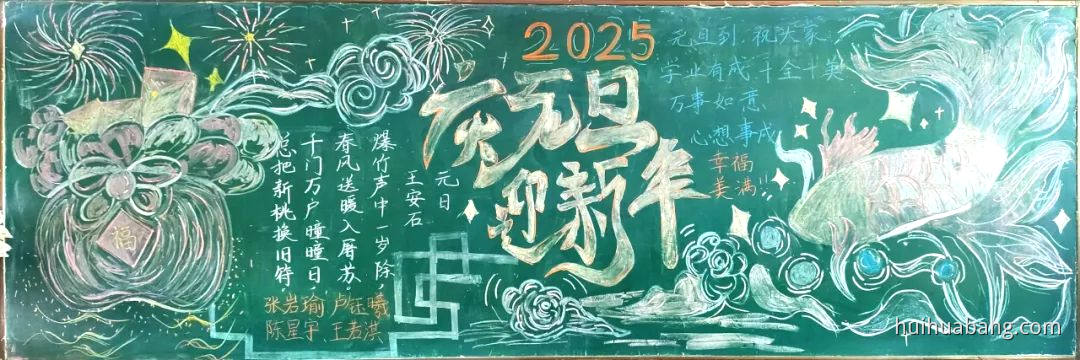 2025
庆元旦
迎新年
元旦到,祝大家:
学业有成 十全十美
万事如意
心想事成
幸福
美满!
元日
王安石
爆竹声中一岁除
春风送暖入屠苏
千门万户曈曈日
总把新桃换旧符
张岩瑜 卢钰曦
陈星宇、王若淇
福
huihuabang.com